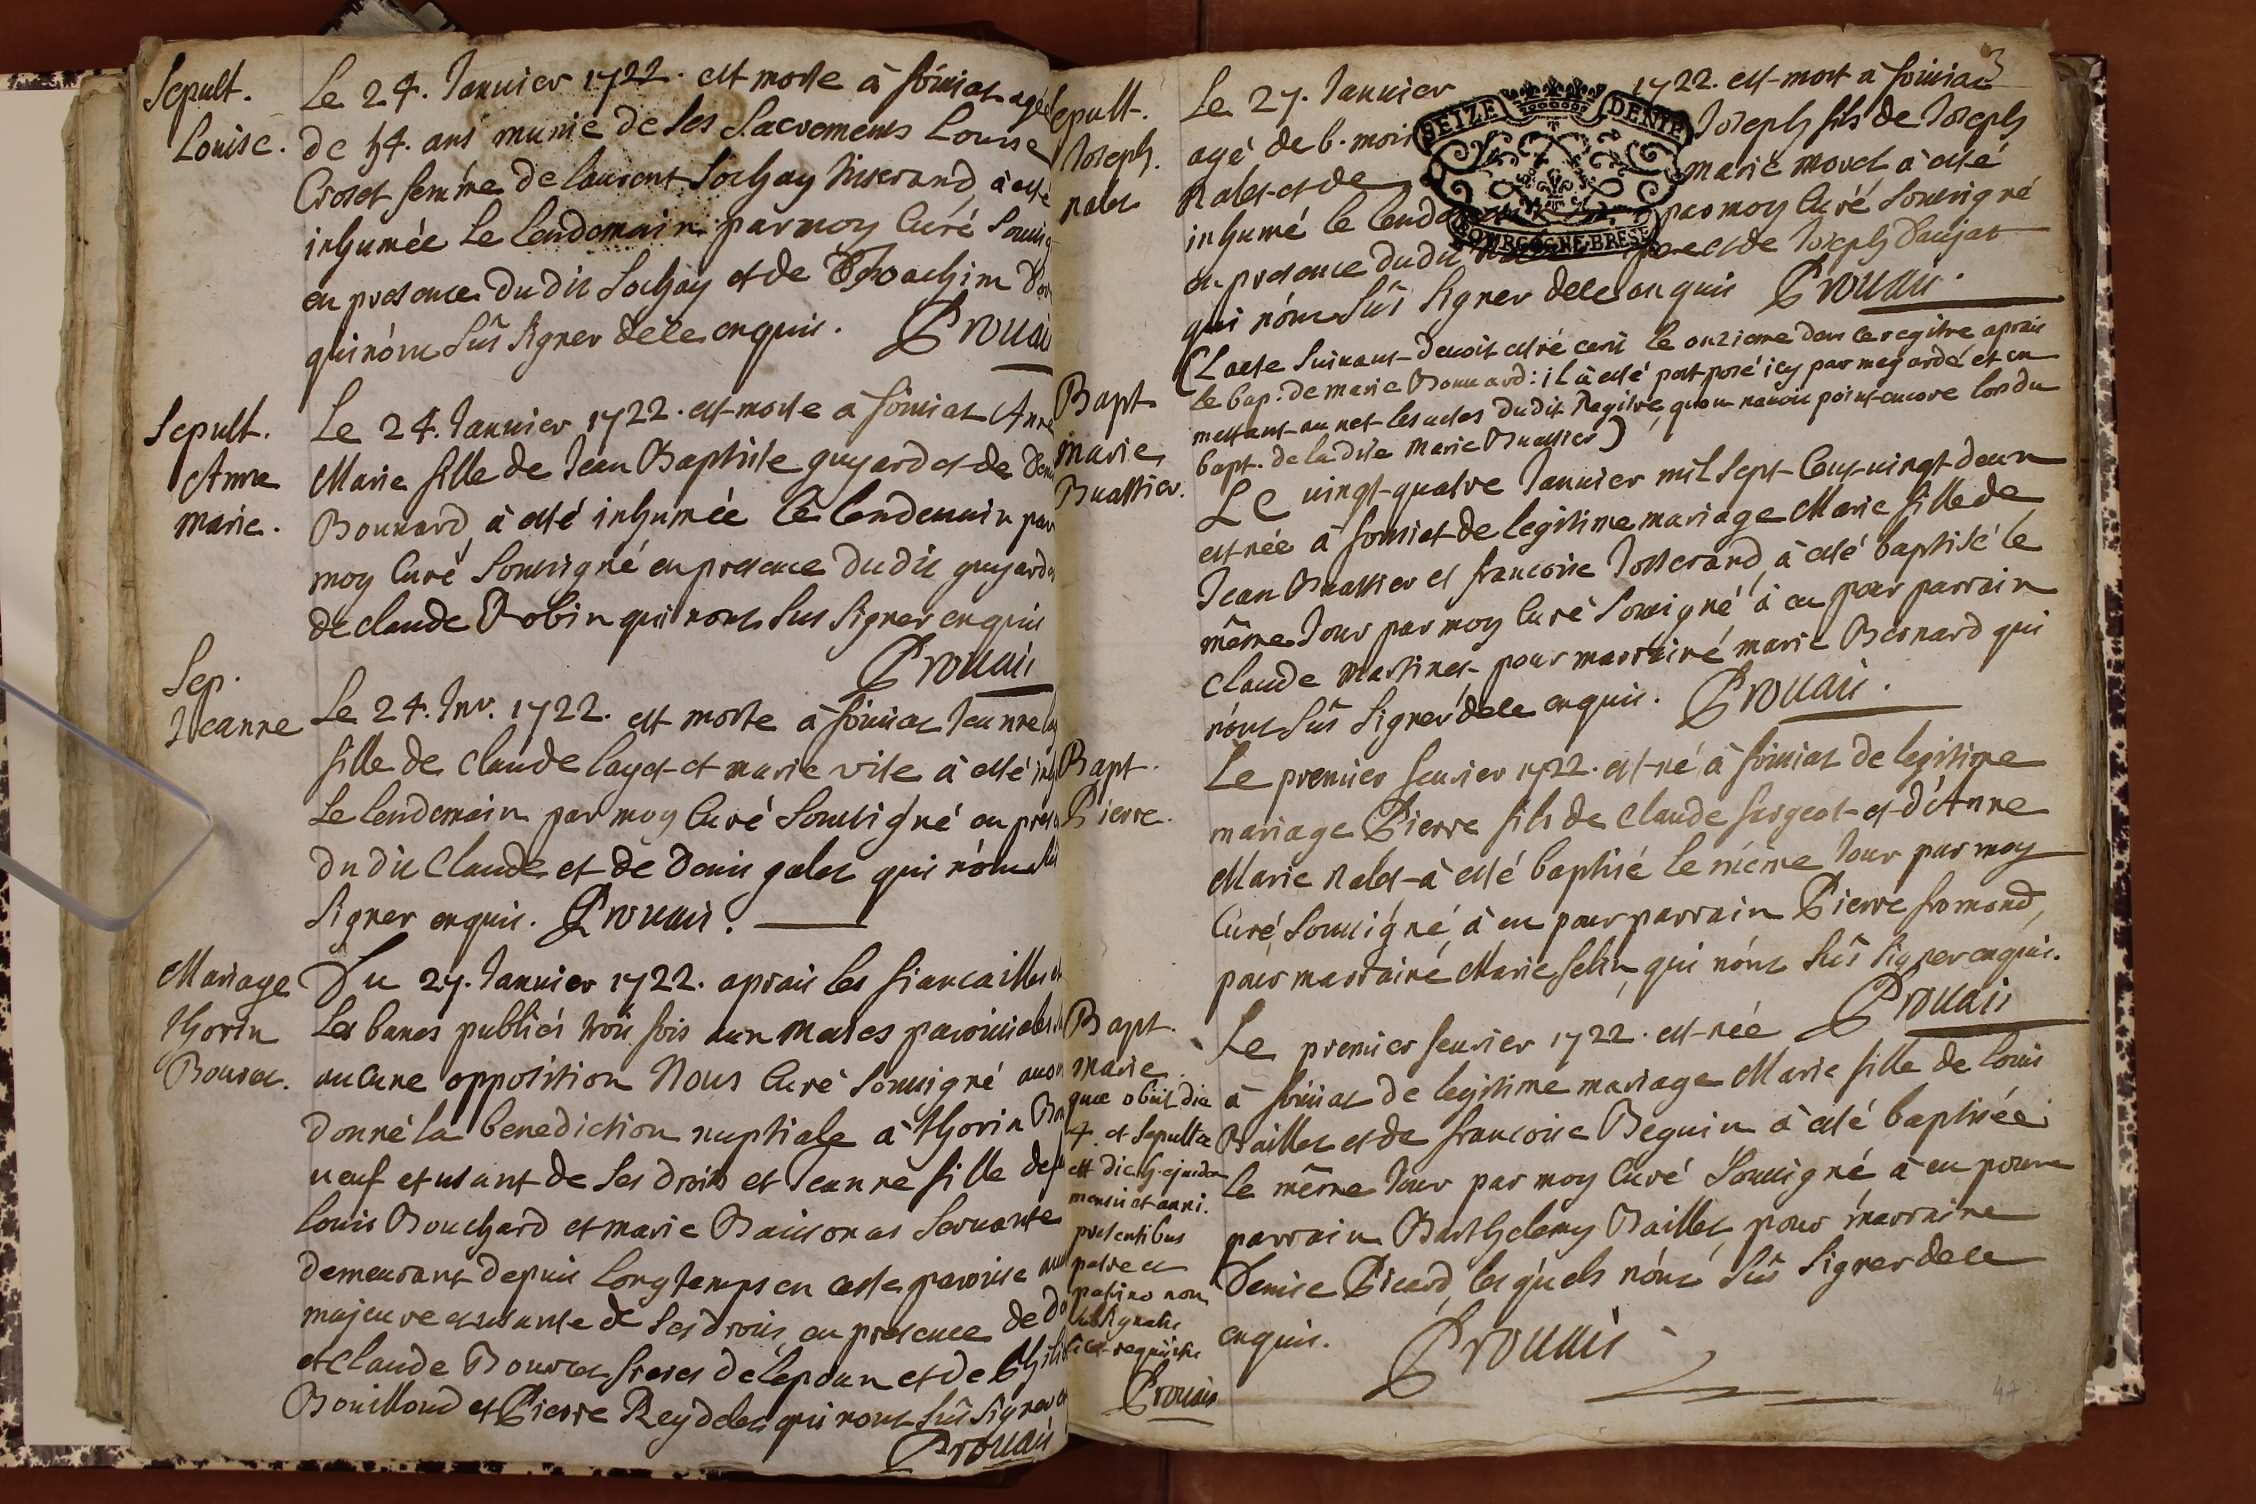 Sepult.
Louise.
Le 24. Januier 1722. est morte à foissiat agée
de 54. ans munie de ses Sacrements Louise
Croset femme de laurent Sochay tisserand, à esté
inhumée Le lendemain par moy Curé Soussig
en presence dudit Sochay et de Joachim
qui n'ont sus signer de ce enquis. Prouais
Sepult.
Anne
marie.
Le 24. Januier 1722. est morte à foissiat Anne
Marie fille de Jean Baptiste guyard et de Deni
Bonnard, à esté inhumée Le lendemain par
moy Curé Soussigné en presence dudit guyard et
de claude Robin qui n'ont sus signer enquis
Prouais
Sep.
Jeanne
Le 24. Jnv. 1722. est morte à foissiat Jeanne
fille de claude layet et marie vite à esté inh
Le lendemain par moy Curé Soussigné en prese
du dit Claude et de Denis galet qui n'ont sus
signer enquis. Prouais.
Mariage
thorin
Bourcet.
Du 27. Januier 1722. aprais les fiancailles et
Les bancs publiés trois fois aux messes paroissiales
aucune opposition Nous Curé Soussigné auons
donné la benediction nuptiale à thorin Bou
ueuf et usant de ses droits et Jeanne fille de feu
Louis Bouchard et marie Baissonas Seruante
demeurant depuis longtemps en ceste paroisse
majeure et usante de ses droits, en presence de
et Claude Bourcet freres de lepoux et de Phili
Bouilloud et Pierre Reydelet qui n'ont sus signer
Prouais
3
Sepult.
Joseph.
nalet
Le 27. Januier 1722. est mort a foissiat
agé de 6. mois Joseph fils de Joseph
Nalet et de marie moret à esté
inhumé le lendemain par moy Curé Soussigné
en presence dudit pere et de Joseph Daujat
qui n'ont sus signer de ce enquis Prouais.
SEIZE DENIE
BOURGOGNE·BRESE
(Lacte Suiuant deuoit estre ecrit le onzieme dans ce registre aprais
le bap: de marie Bonnard: il à esté postposé icy par megarde et en
mettant au net les actes dudit Registre, quon nauoit point encore lors du
bapt. de la dite Marie Buattier)
Bapt
marie
Buattier.
Le uingt-quatre Januier mil sept Cens uingt deux
est née à foissiat de legitime mariage Marie fille de
Jean Buattier et francoise Josserand, à esté baptisé le
même Jour par moy Curé Soussigné, à eu pour parrain
claude Martinet pour marrainé marie Bernard qui
n'ont sus signer de ce enquis. Prouais.
Bapt.
Pierre.
Le premier feurier 1722. est né à foissiat de legitime
mariage Pierre fils de claude fargeot et d'Anne
Marie Nalet à esté baptisé le même Jour par moy
Curé Soussigné, à eu pour parrain Pierre fromond,
pour marrainé Marie felix, qui n'ont sus signer enquis.
Prouais
Bapt.
Marie.
quæ obiit die
4. et sepulta
est die 5. ejusdem
mensis et anni.
presentibus
patre et
patrino non
subsignatis
licet requisitis
Prouais
Le premier feurier 1722. est née
à foissiat de legitime mariage Marie fille de louis
Baillet et de francoise Beguin à esté baptisée
le même Jour par moy Curé Soussigné à eu pour
parrain Barthelemy Baillet, pour marraine
Denise Picard, lesquels n'ont sus signer de ce
enquis. Prouais
47